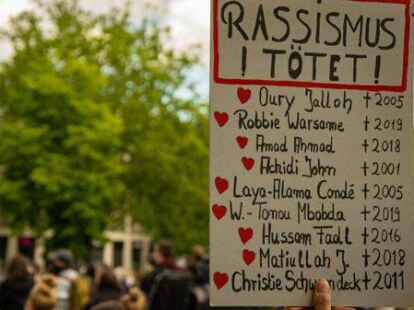 RASSISMUS
! TÖTET !
Oury Jalloh †2005
Robbie Warsame †2019
Amad Ahmad †2018
Achidi John †2001
Laya-Alama Condé †2005
W.-Tonou Mbobda †2019
Hussam Fadl †2016
Matiullah J. †2018
Christie Schwundeck †2011